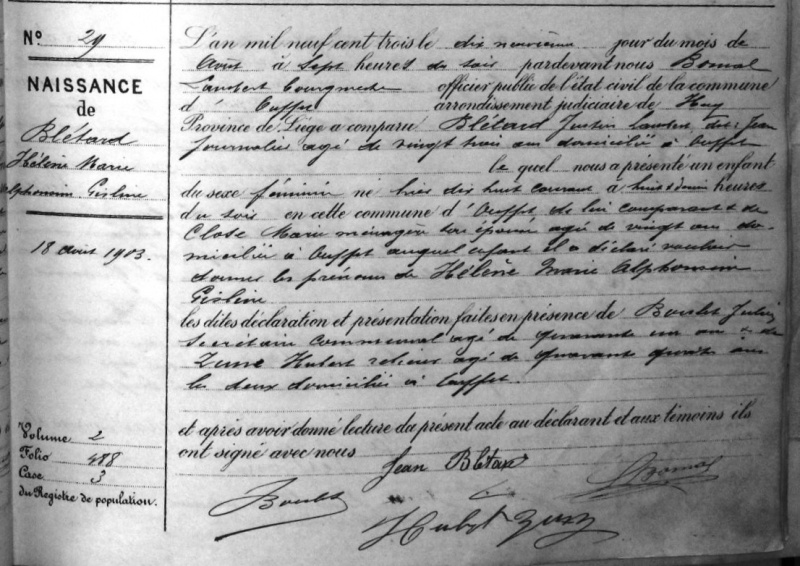 N° 29
NAISSANCE
de
Blétard
Hélène Marie
Alphonsin Gisline
18 août 1903.
Volume 2
Folio 488
Case 3
du Registre de population.
L'an mil neuf cent trois le dix neuvième jour du mois de
Août à Sept heures du soir pardevant nous Bomal
Lambert Bourgmestre officier public de l'état civil de la commune
d' Ouffet arrondissement judiciaire de Huy
Province de Liége a comparu Blétard Justin Lambert dit Jean
Journalier agé de vingt trois ans domicilié à Ouffet
le quel nous a présenté un enfant
du sexe féminin né hier dix huit courant à huit & demie heures
du soir en cette commune d' Ouffet, de lui comparant & de
Close Marie ménagère son épouse agée de vingt ans do-
miciliée à Ouffet auquel enfant il a déclaré vouloir
donner les prénoms de Hélène Marie Alphonsin
Gisline
les dites déclaration et présentation faites en présence de Boulet Justin
Secrétaire communal agé de quarante un ans & de
Zune Hubert relieur agé de quarante quatre ans
les deux domiciliés à Ouffet.
et après avoir donné lecture du présent acte au déclarant et aux témoins ils
ont signé avec nous
Jean Blétard
Boulet
LBomal
Hubert